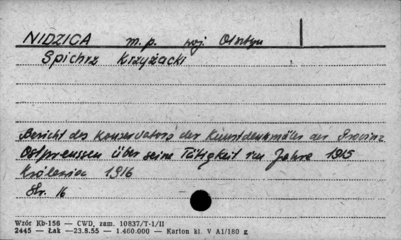 NIDZICA m.p. woj. Olsztyn
Spichrz Krzyżacki
Bericht des Konservators der Kunstdenkmäler der Provinz
Ostpreussen über seine Tätigkeit im Jahre 1915
Królewiec 1916
Str. 16
Wzór Kb-156 — CWD, zam. 10837/T-1/II
2445 — Łak —23.8.55 — 1.460.000 — Karton kl. V A1/180 g